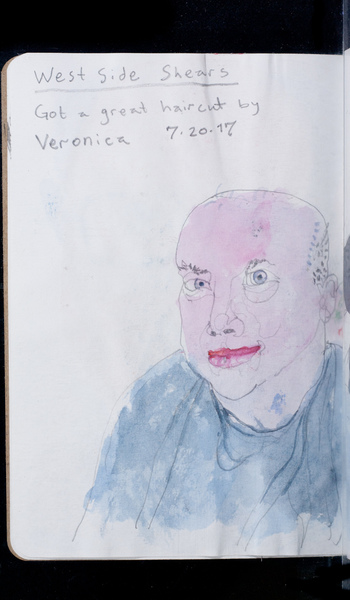 West Side Shears
Got a great haircut by
Veronica 7.20.17